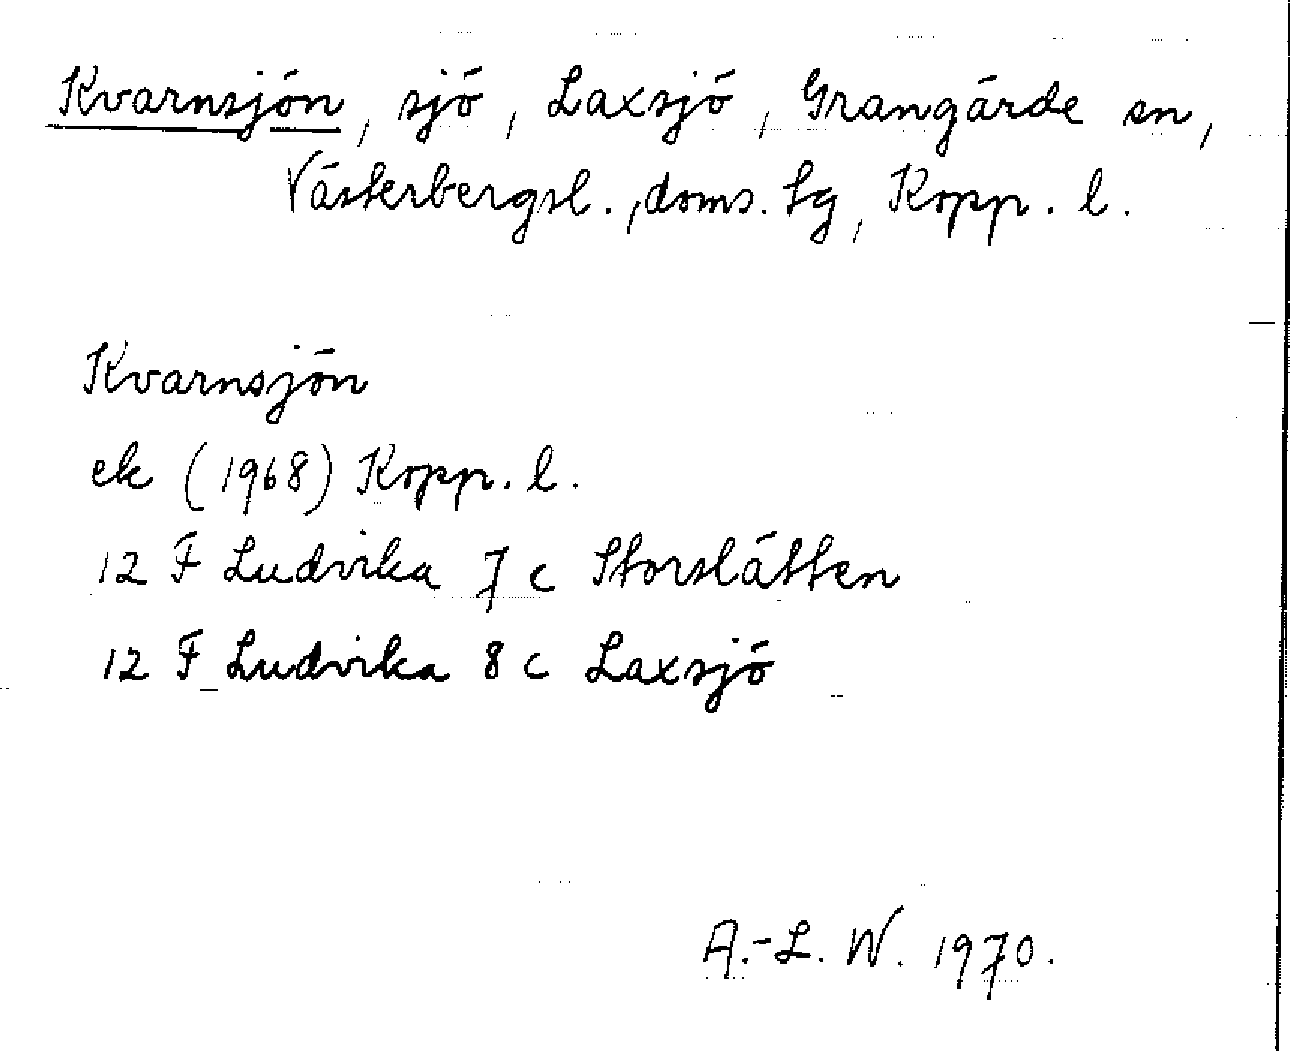 Kvarnsjön, sjö, Laxsjö, Grangärde sn,
Västerbergsl., doms. tg, Kopp. l.
Kvarnsjön
ek (1968) Kopp. l.
12 F Ludvika 7 c Storslätten
12 F Ludvika 8 c Laxsjö
A.-L. W. 1970.